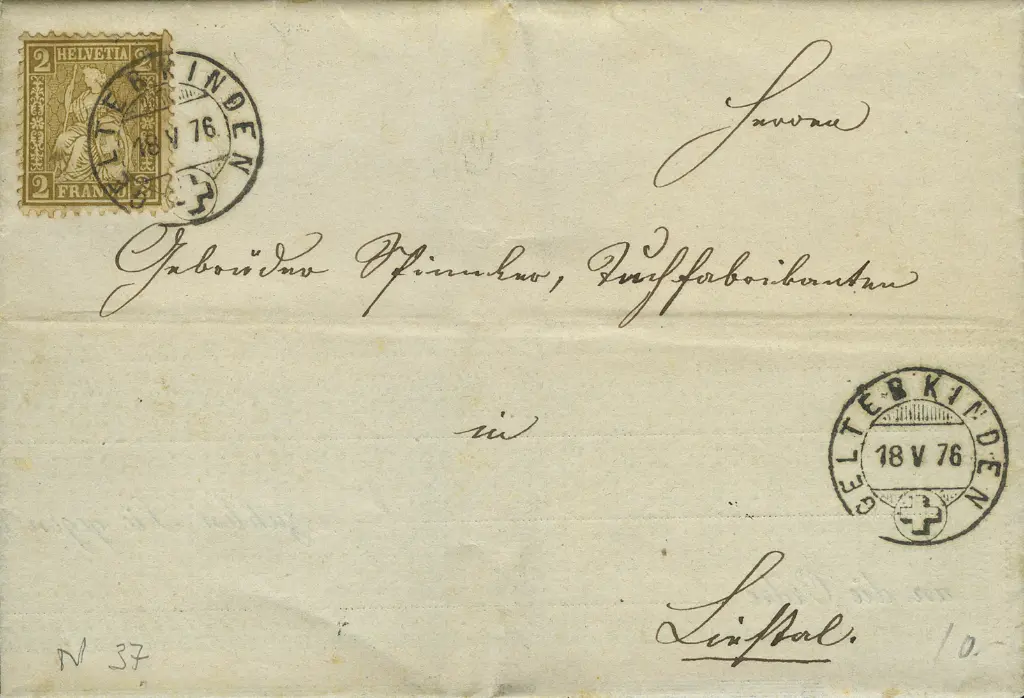 2 HELVETIA 2
2 FRANCO 2
GELTERKINDEN
18 V 76
Herren
Gebrüder Spinnler, Tuchfabrikanten
in
GELTERKINDEN
18 V 76
Liestal.
N 37
10.-